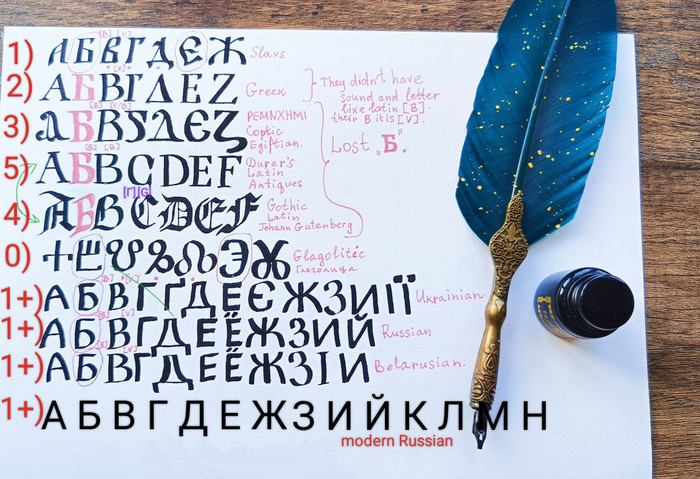 1) АБВГДЕЖ Slavs
2) АБВГΔΕΖ Greek
They didn't have sound and letter like latin [B]. their B it is [V].
3) ⲀБВЅΔЕⲌ РЕМNXHMI Coptic Egiptian.
Lost „Б"
5) АБBCDEF Durer's Latin Antiques
[Г][G]
4) AБBCDEF Gothic Latin Johann Gutenberg
0) ⰀⰁⰂⰃⰄⰅⰆ Glagolitic Глаголица
1+) АБВГҐДЕЄЖЗИІЇ Ukrainian
1+) АБВГДЕЁЖЗИЙ Russian
1+) АБВГДЕЁЖЗІИ Belarusian.
1+) АБВГДЕЖЗИЙКЛМН
modern Russian